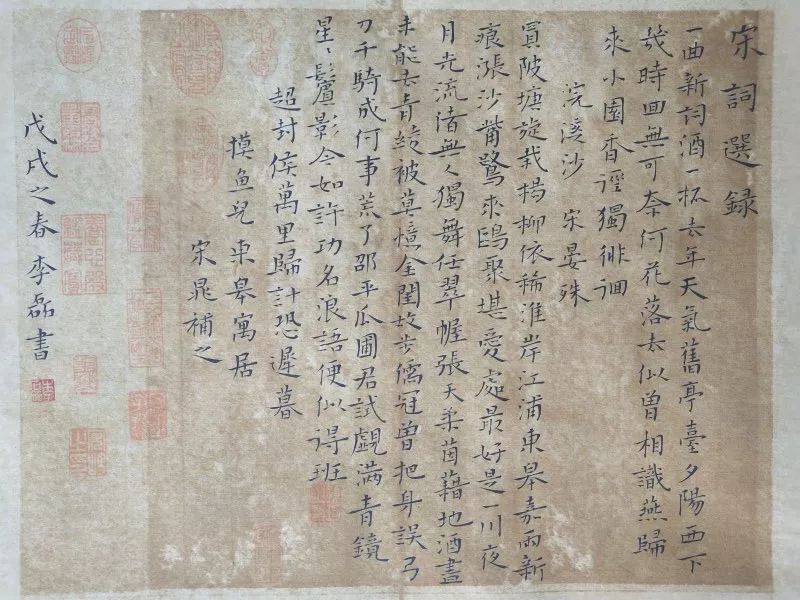 宋詞選録
一曲新詞酒一杯去年天氣舊亭臺夕陽西下
幾時回無可奈何花落去似曾相識燕歸
來小園香徑獨徘徊
浣溪沙 宋晏殊
買陂塘旋栽楊柳依稀淮岸江浦東皋嘉雨新
痕漲沙觜鷺來鷗聚堪愛處最好是一川夜
月光流渚無人獨舞任翠幄張天柔茵藉地酒盡
未能去青綾被莫憶金閨故步儒冠曾把身誤弓
刀千騎成何事荒了邵平瓜圃君試覷滿青鏡
星〻鬢影今如許功名浪語便似得班
超封侯萬里歸計恐遲暮
摸魚兒東皋寓居
宋晁補之
戊戌之春李磊書